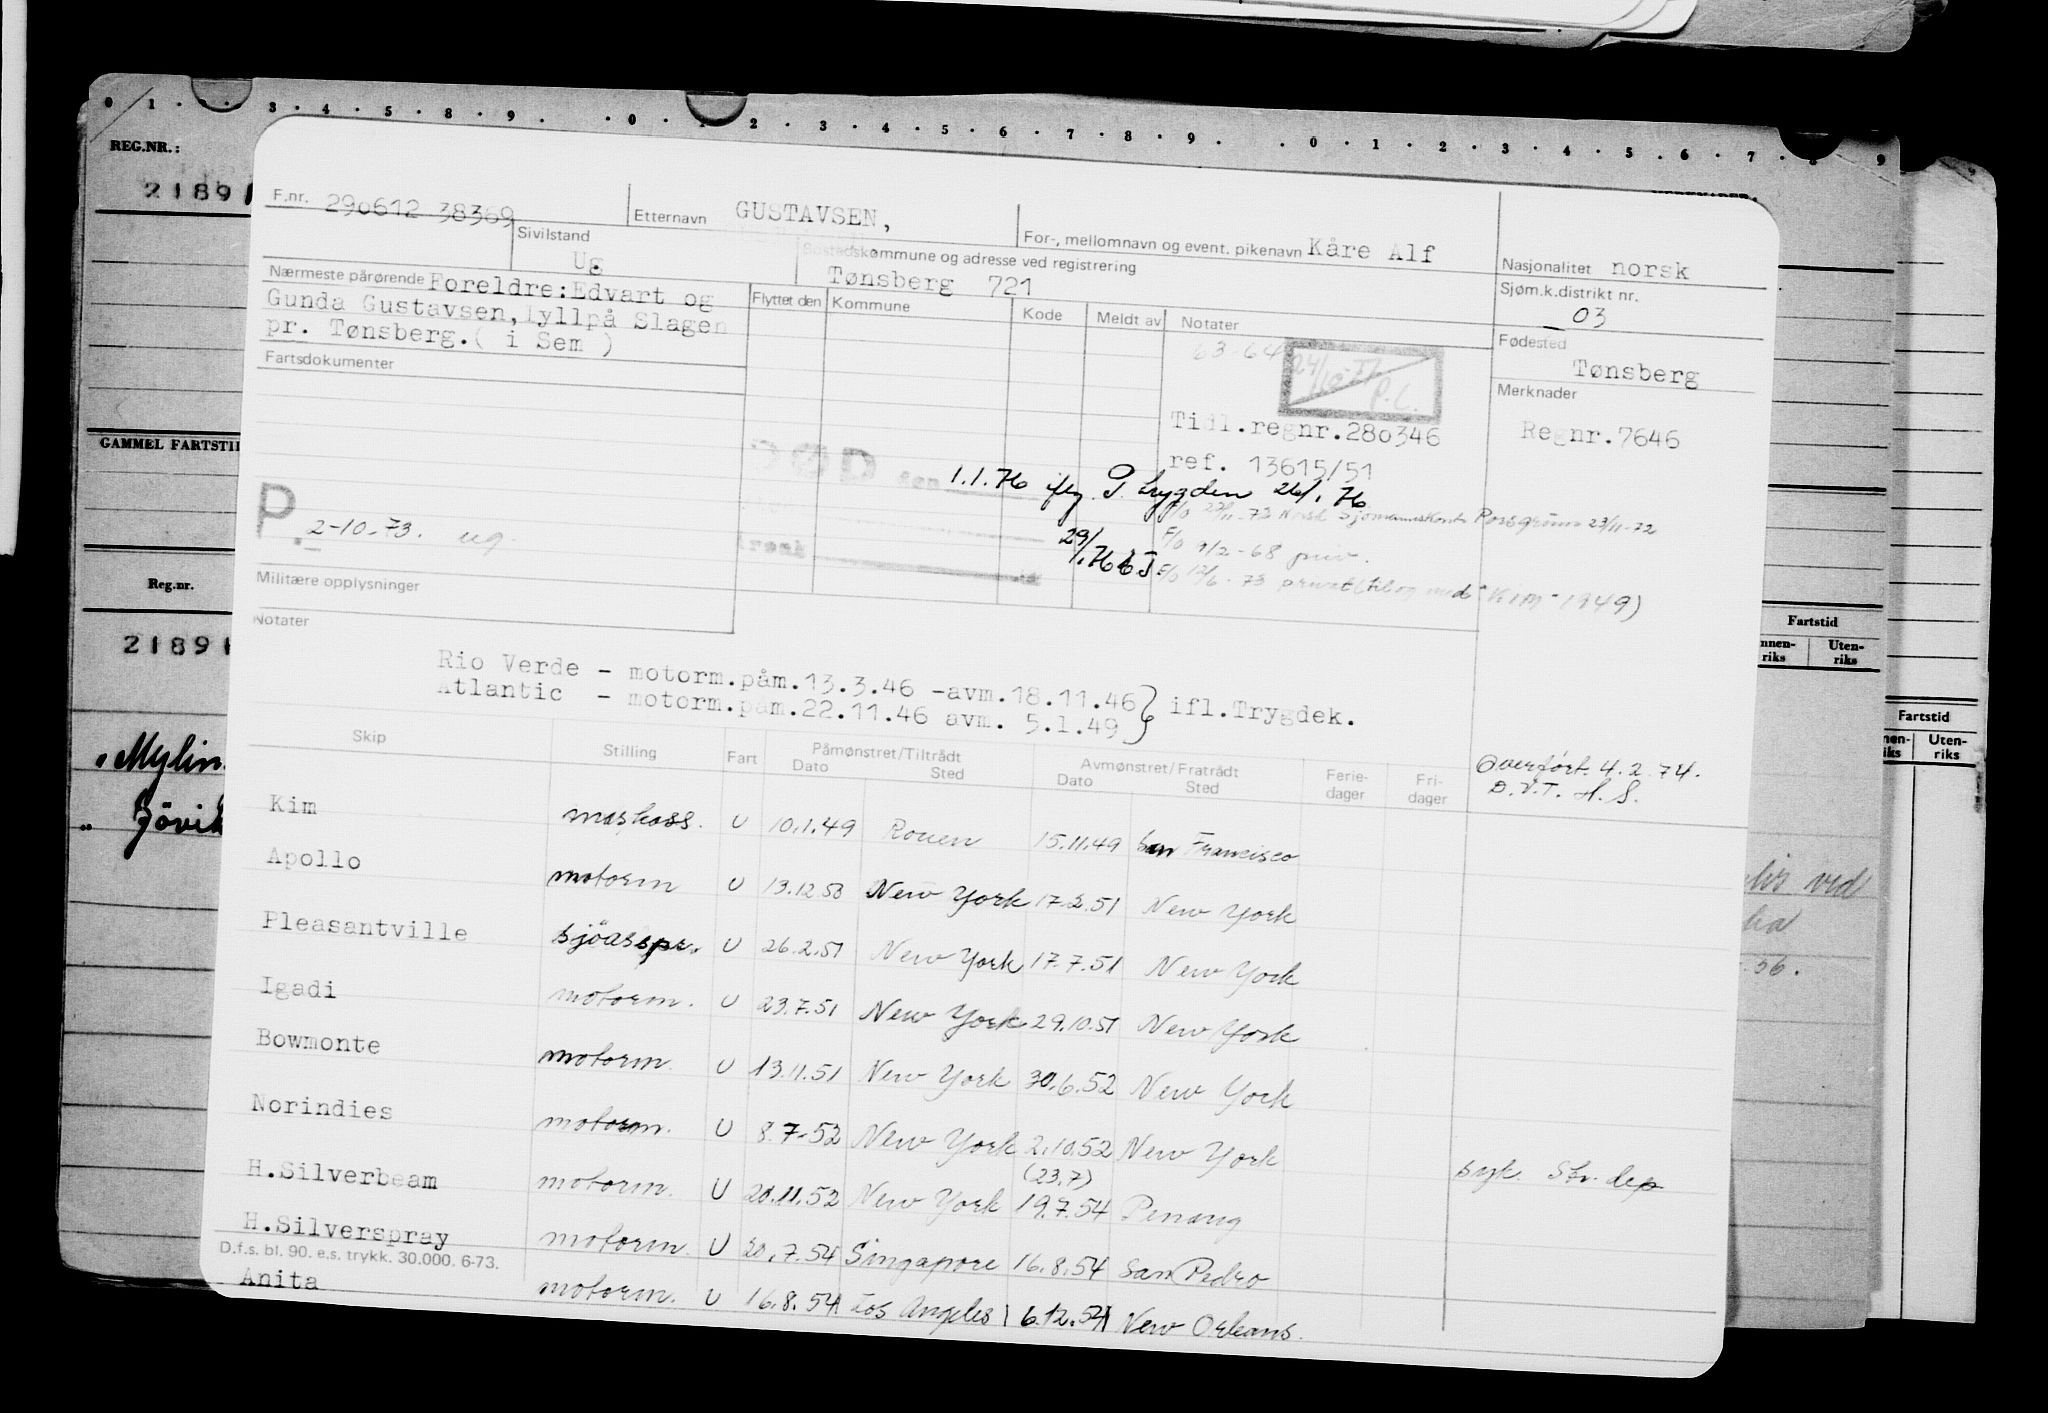 0 1 · 2 · 3 · 4 · 5 · 8 · 9 · · 0 · 1 · 2 · 3 · 4 · 5 · 6 · 7 · 8 · 9 · · 0 · 1 · 2 · 3 · 4 · 5 · 6 · 7 · 8 · 9
REG.NR.:
21891
F.nr. 290612 38369
Etternavn GUSTAVSEN,
For-, mellomnavn og event. pikenavn Kåre Alf
Nasjonalitet norsk
Sivilstand
Ug.
Bostedskommune og adresse ved registrering
Tønsberg 721
Sjøm.k.distrikt nr.
03
Nærmeste pårørende Foreldre: Edvart og
Gunda Gustavsen, Lyllpå Slagen
pr. Tønsberg. ( i Sem )
Flyttet den
Kommune
Kode
Meldt av
Notater
Fødested
Tønsberg
Fartsdokumenter
63-64
24/10-71
P.L.
Merknader
Tidl.regnr.280346
Regnr.7646
ref. 13615/51
GAMMEL FARTSTID
DØD den 1.1.76 iflg. P. trygden 26/1 76
F/O 22/11-72 Norsk Sjømannskont. Porsgrunn 23/11-72
P. 2-10.73. ug.
29/1.76
F/O 9/2-68 priv.
F/O 12/6-73 privat (tilog med "KIM" 1949)
Militære opplysninger
Reg.nr.
Notater
21891
Fartstid
Uten-
riks
Rio Verde - motorm.påm.13.3.46 -avm.18.11.46
Atlantic - motorm.påm.22.11.46 avm. 5.1.49 } ifl.Trygdek.
Fartstid
Uten-
riks
Skip
Stilling
Fart
Påmønstret/Tiltrådt
Dato Sted
Avmønstret/Fratrådt
Dato Sted
Ferie-
dager
Fri-
dager
Overført. 4.2.74.
D.V.T. H.S.
Kim maskass. U 10.1.49 Rouen 15.11.49 San Francisco
Apollo motorm U 13.12.50 New York 17.2.51 New York
Pleasantville sjöasspr. U 26.2.51 New York 17.7.51 New York
Igadi motorm. U 23.7.51 New York 29.10.51 New York
Bowmonte motorm. U 13.11.51 New York 30.6.52 New York
Norindies motorm. U 8.7-52 New York 2.10.52 New York syk. Str. dep
H.Silverbeam motorm. U 20.11.52 New York (23.7) 19.7.54 Penang
H.Silverspray motorm. U 20.7.54 Singapore 16.8.54 San Pedro
D.f.s. bl. 90. e.s. trykk. 30.000. 6-73.
Anita motorm. U 16.8.54 Los Angeles 6.12.54 New Orleans.